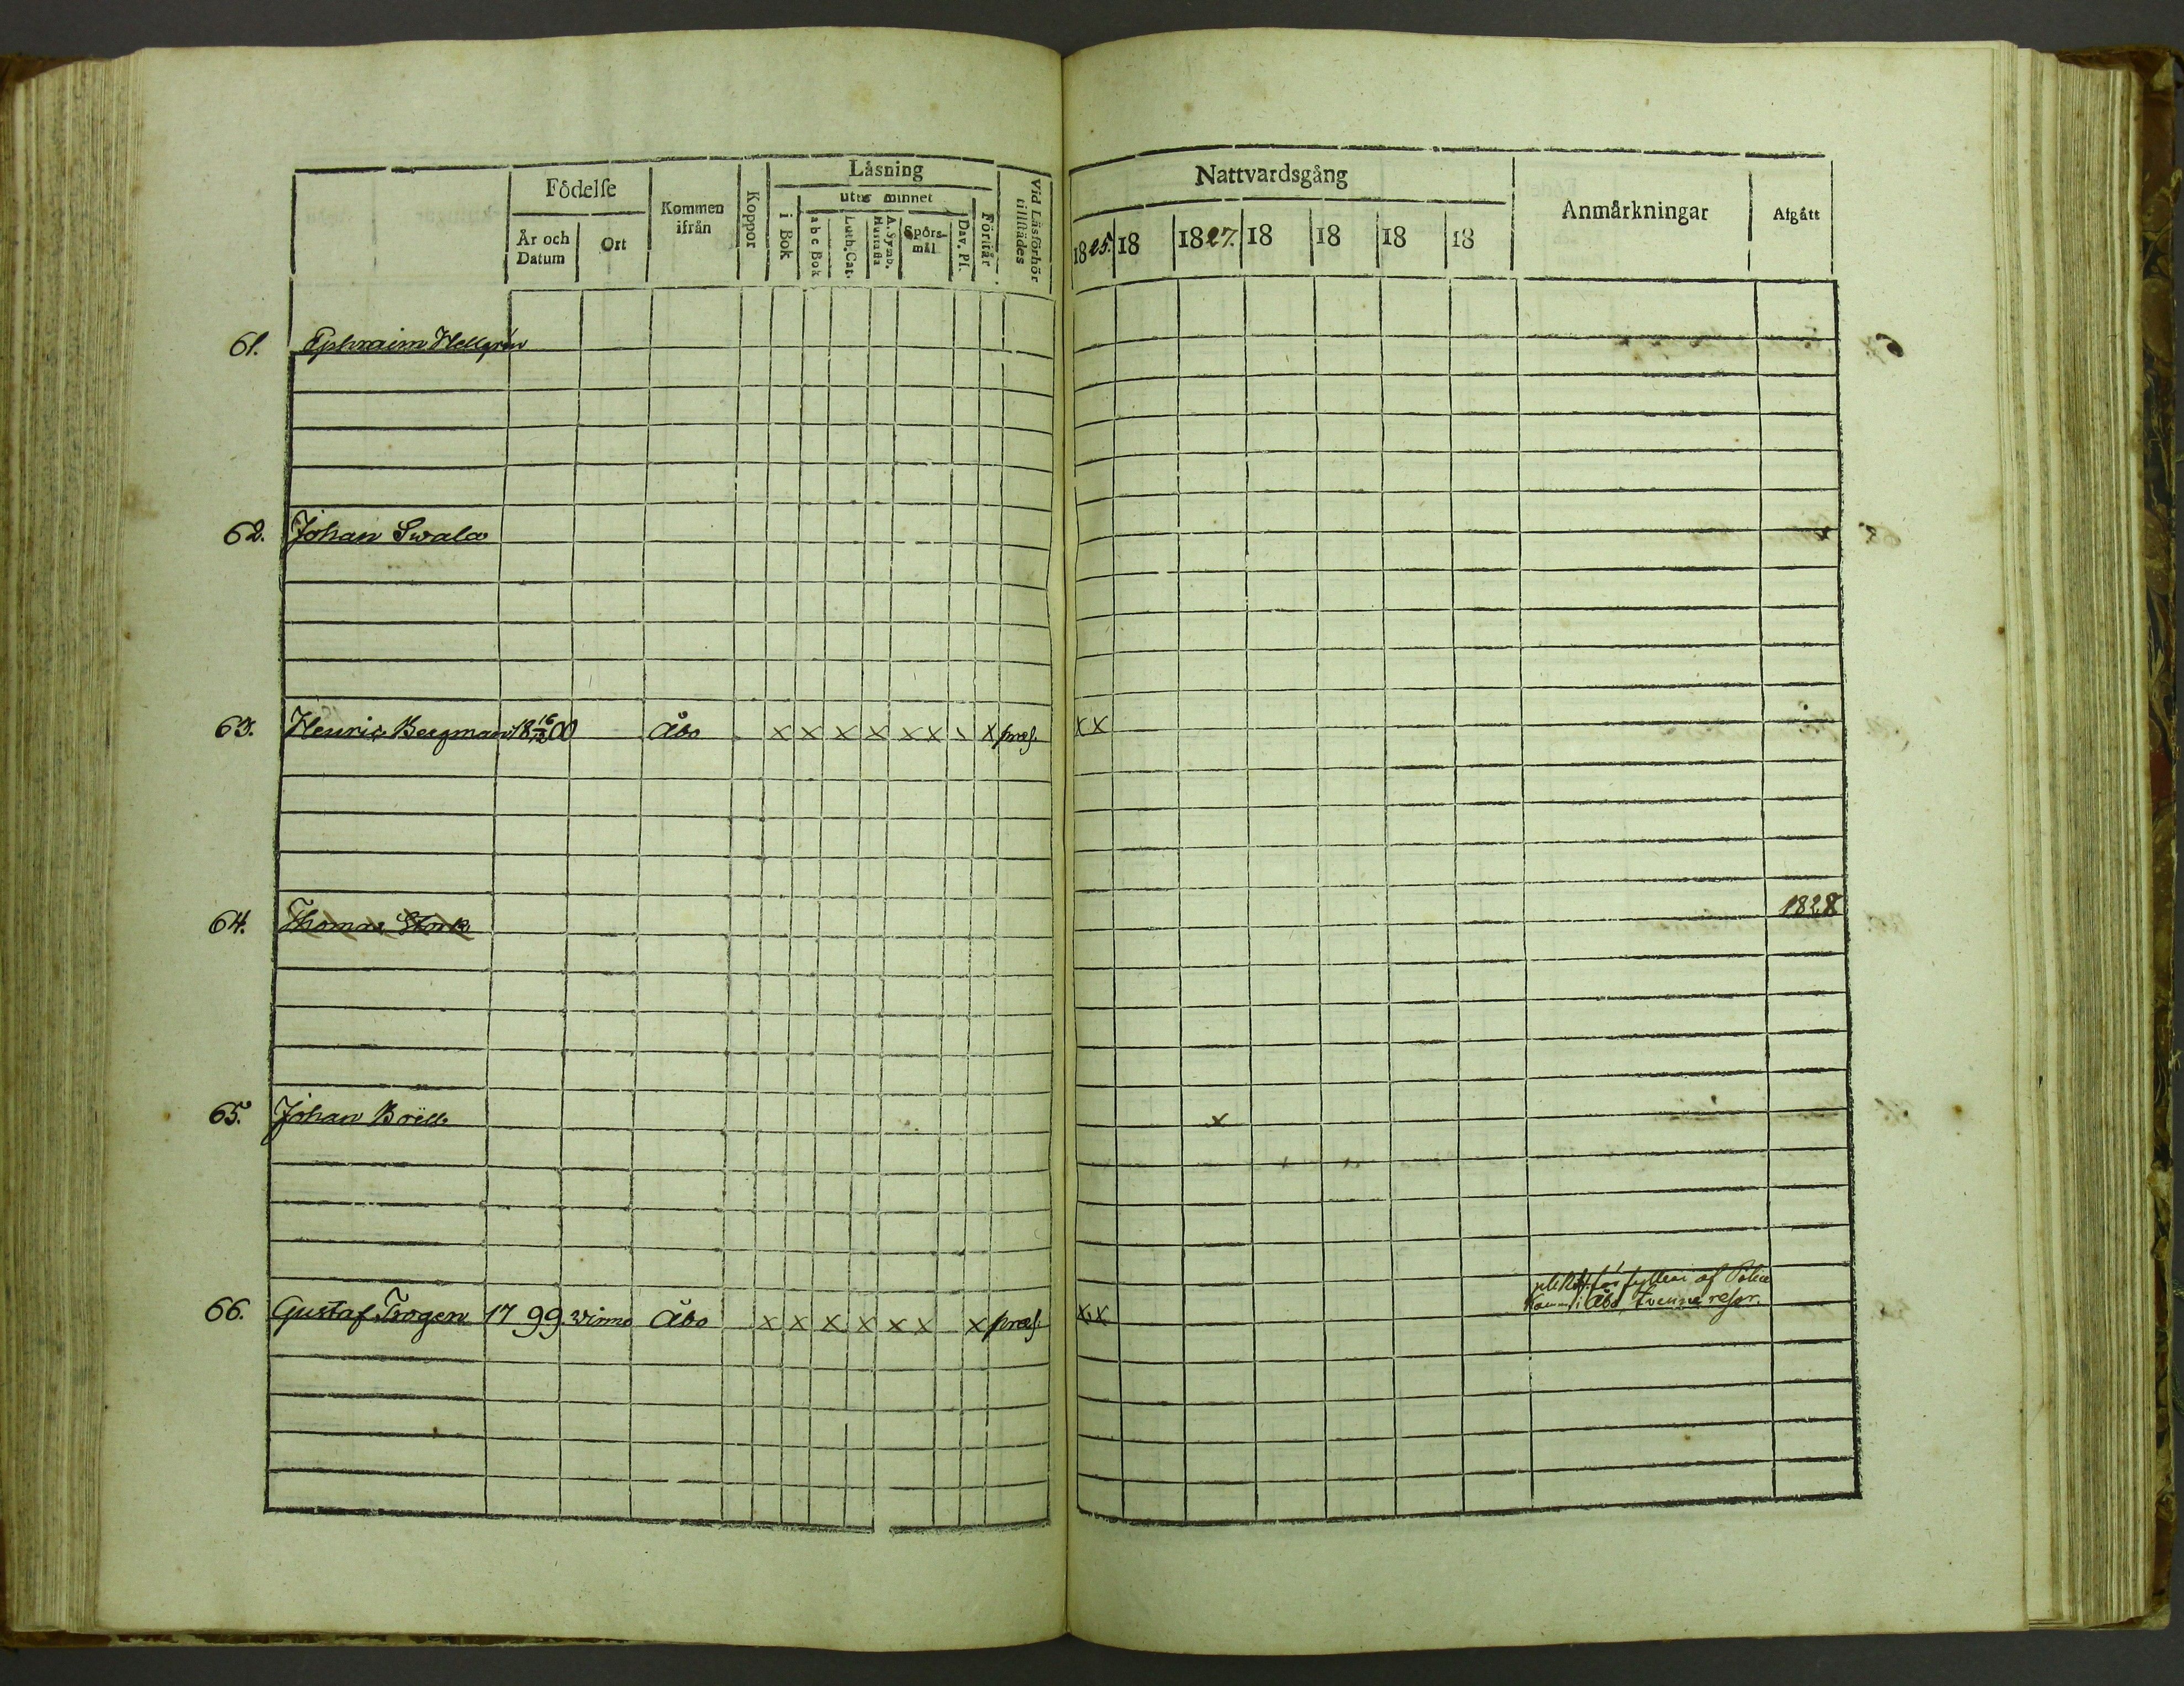 Födelse
År och Datum
Ort
Kommen ifrån
Koppor
Låsning
i Bok
utur minnet
a b c Bok
Luth. Cat.
A. Symb. Hustafla
Spörs-mål
Dav. Ps.
Förstår
Vid Läsförhör tillstädes
Nattvardsgång
1825. 18 1827. 18 18 18 18
Anmärkningar
Afgått
61. Ephraim Hellgrén
62. Johan Swala
63. Henric Bergman 18 16/12 00 Åbo x x x x x x x x præs. x x
64. Thomas Stork 1828
65. Johan Boëll x
66. Gustaf Trogen 1799 Virmo Åbo x x x x x x x præs. x x
för fylleri af Police
Kamm. i Åbo, tvenne resor.